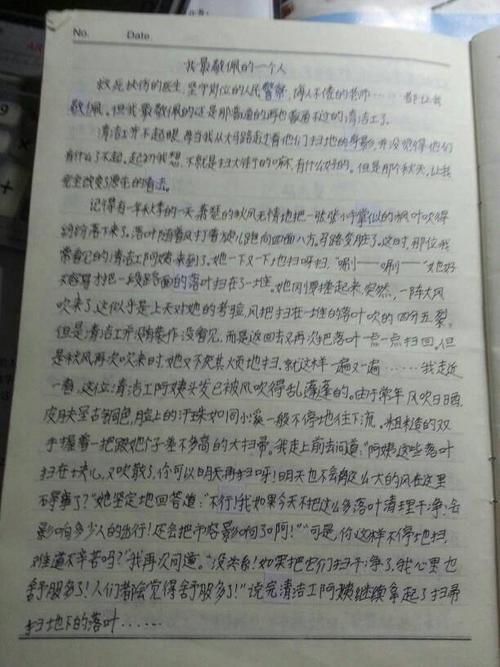 No.    Date.
我最敬佩的一个人
救死扶伤的医生，坚守岗位的人民警察，诲人不倦的老师……都让我
敬佩。但我最敬佩的还是那普通的再也普通不过的清洁工了。
清洁工并不起眼，每当我从大马路走过看他们扫地的身影，并没觉得他们
有什么了不起。起初我想，不就是扫大街的嘛，有什么好的。但是那个秋天，让我
完全改变了原先的看法。
记得有一年秋季的一天，萧瑟的秋风无情地把一张张小手掌似的枫叶吹得
纷纷落下来了。落叶随着风打着旋儿跑向四面八方。马路变脏了。这时，那位我
常看见的清洁工阿姨来到了。她一下又一下地扫呀扫，“唰——唰——”她好
不容易才把一段路面的落叶扫在了一堆。她刚要撮起来，突然，一阵大风
吹来了，这似乎是上天对她的考验，风把扫在一堆的落叶吹的四分五裂。
但是清洁工并没有装作没看见，而是返回去又再次把落叶一点一点扫回。但
是秋风再次吹来时，她又不厌其烦地扫，就这样一遍又一遍……我走近
一看，这位清洁工阿姨头发已被风吹得乱蓬蓬的。由于常年风吹日晒，
皮肤呈古铜色，脸上的汗珠如同小溪一般不停地往下流。粗糙的双
手握着一把跟她个子差不多高的大扫帚。我走上前去问道：“阿姨这些落叶
扫在一块儿，又吹散了，你可以明天再扫呀！明天也不会有这么大的风在这里
了？”她坚定地回答道：“不行！我如果今天不把这么多落叶清理干净，会
影响多少人的出行！还会把市容影响了啊！”“可是，你这样不停地扫，
难道不辛苦吗？”我再次问道。“没关系！如果把它们扫干净了，我心里也
舒服多了！人们都会觉得舒服多了！”说完清洁工阿姨继续拿起了扫帚
扫地下的落叶……